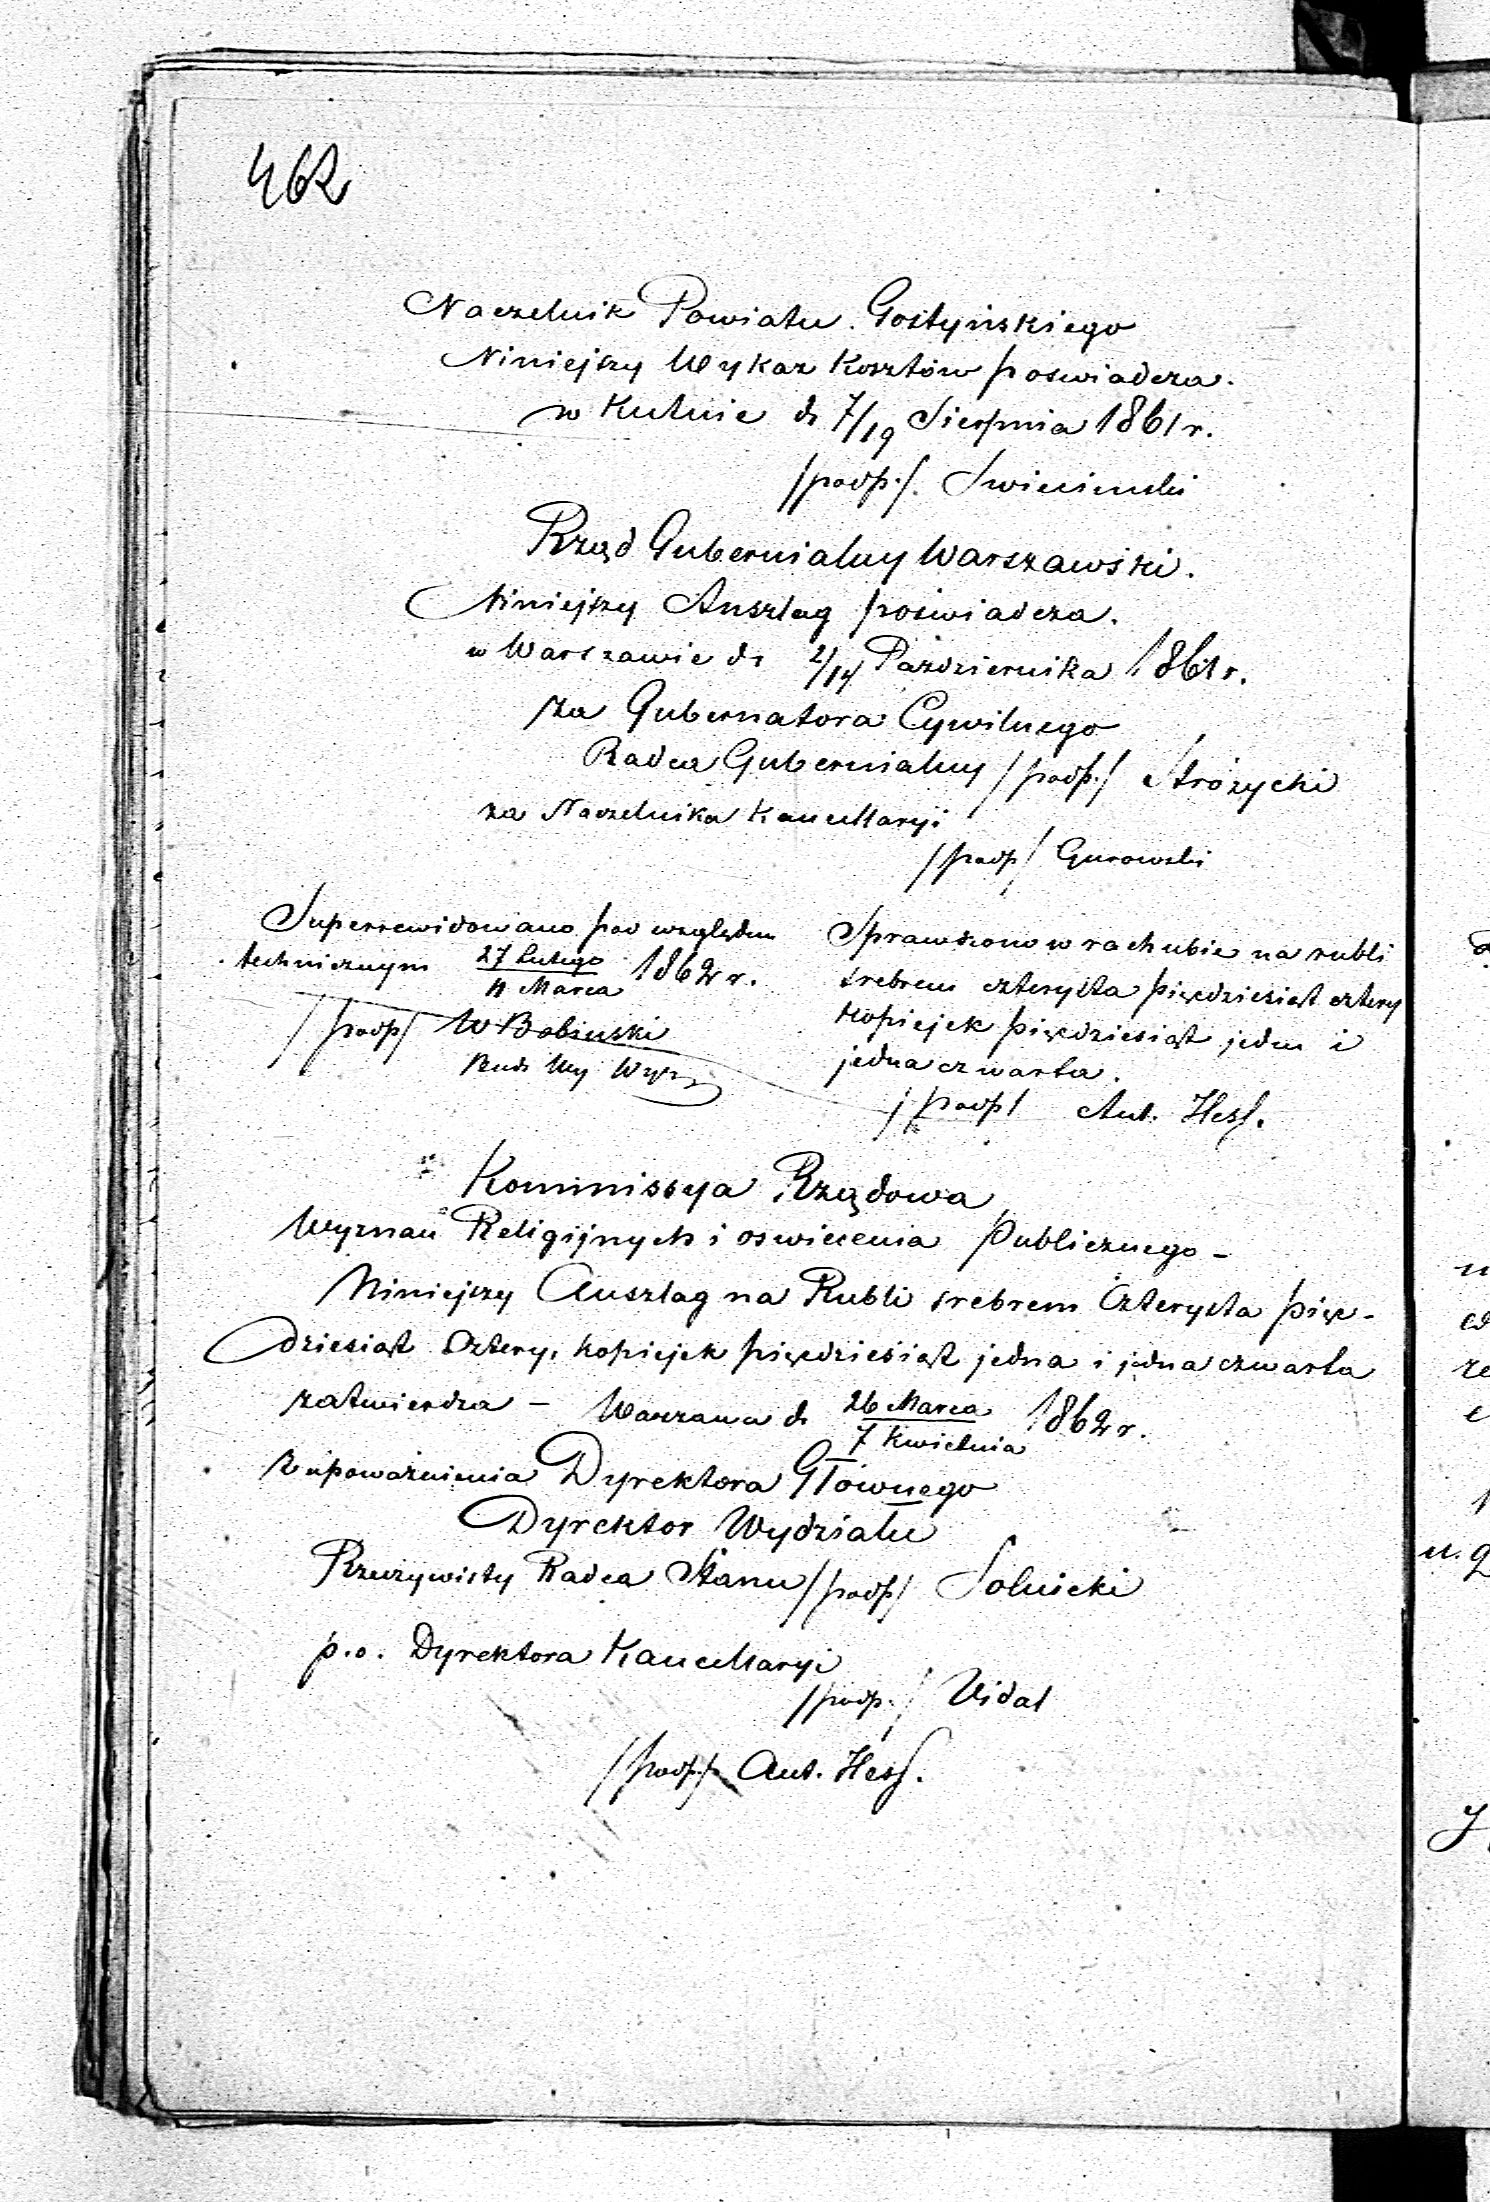 462
Naczelnik Powiatu Gostyńskiego
Niniejszy Wykaz Kosztów poswiadcza.
w Kutnie d. 7/19 Sierpnia 1861 r.
/podp./. Swiecimski
Rząd Gubernialny Warszawski.
Niniejszy Anszlag poświadcza.
w Warszawie d. 2/14 Października 1861 r.
za Gubernatora Cywilnego
Radca Gubernialny /podp./ Stróżycki
za Naczelnika Kancellaryi
/podp/ Gurowski
Superrewidowano pod względem
technicznym 27 Lutego / 11 Marca 1862 r.
/podp/ W Bobinski
Bud.
Sprawdzono w rachubie na rubli
srebrem czterysta pięćdziesiąt cztery
kopiejek pięćdziesiąt jeden i
jedna czwarta.
/podp/ Ant. Hess.
Kommissya Rządowa
Wyznań Religijnych i oswiecenia Publicznego -
Niniejszy Anszlag na Rubli srebrem Czterysta pięć-
dziesiąt Cztery, kopiejek pięćdziesiąt jedna i jedna czwarta
zatwierdza - Warszawa d. 26 Marca / 7 Kwietnia 1862 r.
z upoważnienia Dyrektora Głównego
Dyrektor Wydziału
Rzeczywisty Radca Stanu /podp/ Solnicki
p.o. Dyrektora Kancellaryi
/podp./ Vidal
/podp./ Ant. Hess.